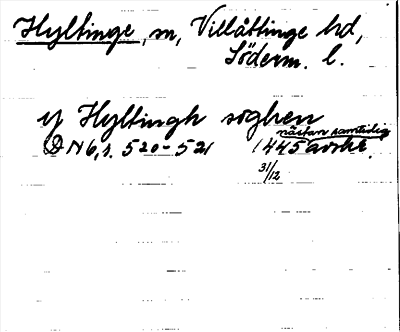 Hyltinge, sn, Villåttinge hd,
Söderm. l.
y Hyltingh soghen
nästan samtidig
D N 6, s. 520-521 1445 avskr.
31/12